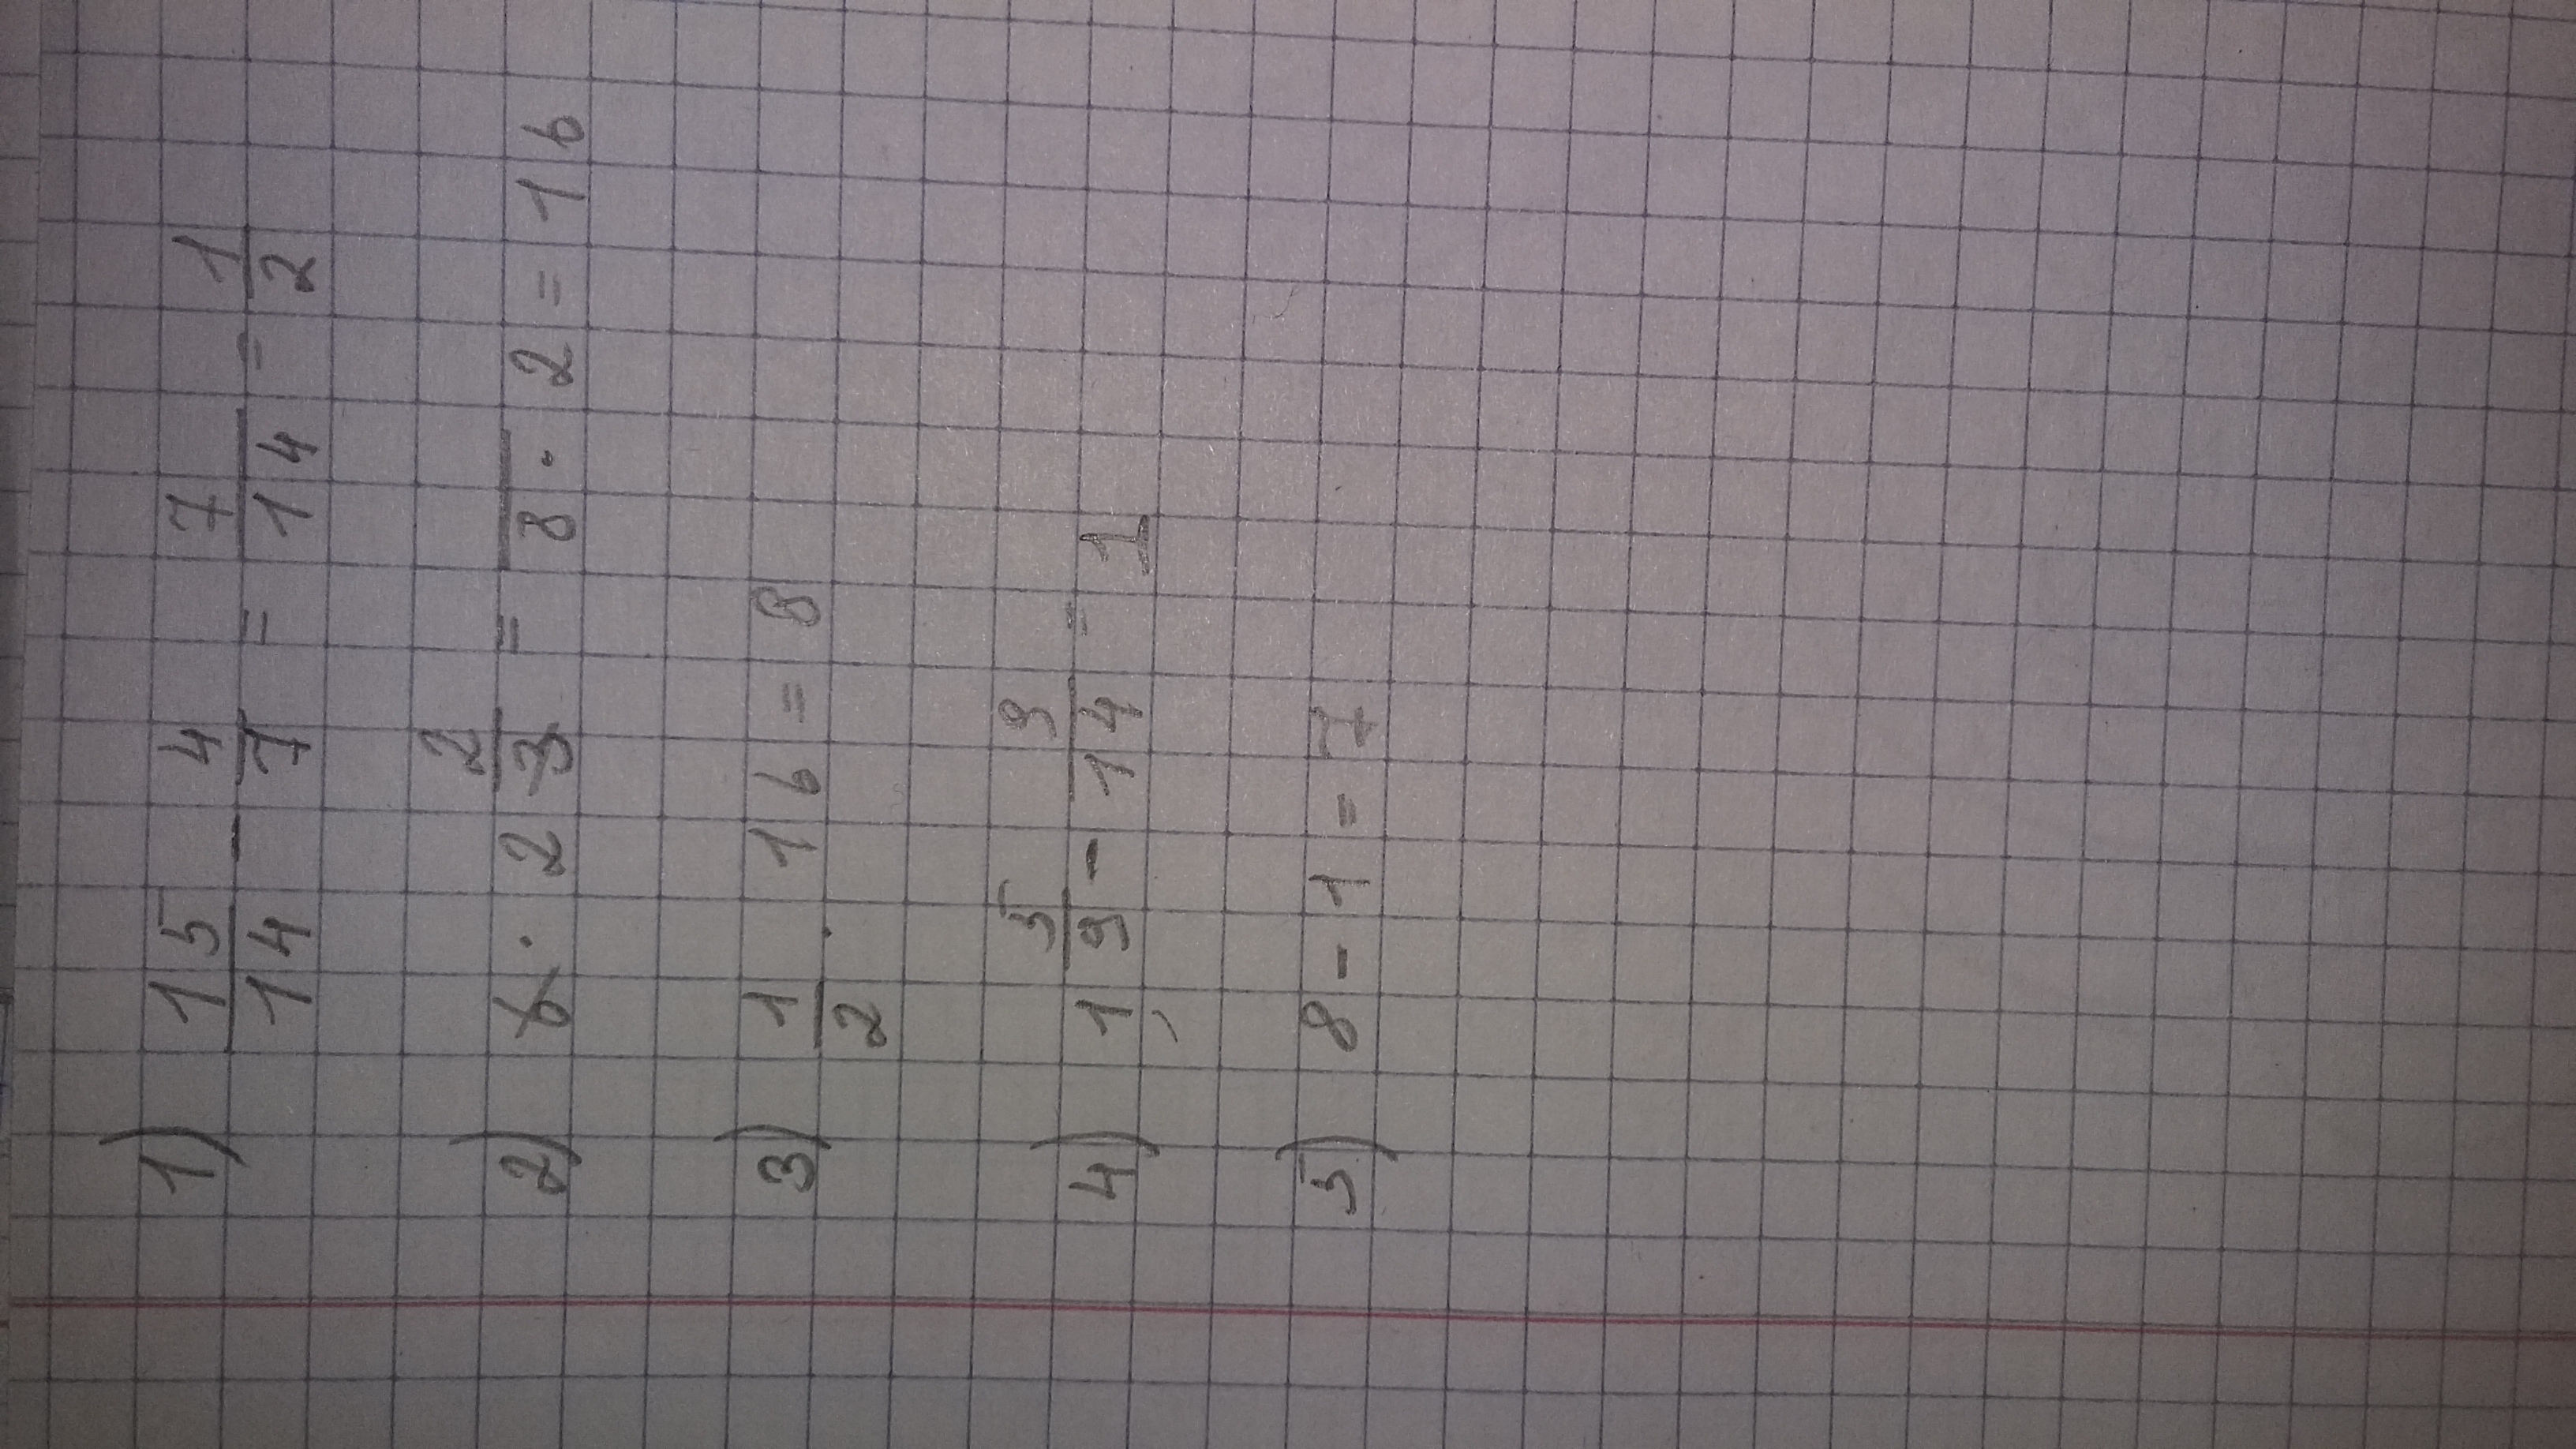 1) 15/14 - 4/7 = 7/14 = 1/2
2) 6 · 2 2/3 = 8 · 2 = 16
3) 1/2 · 16 = 8
4) 1 5/9 - 9/14 = 1
5) 8 - 1 = 7